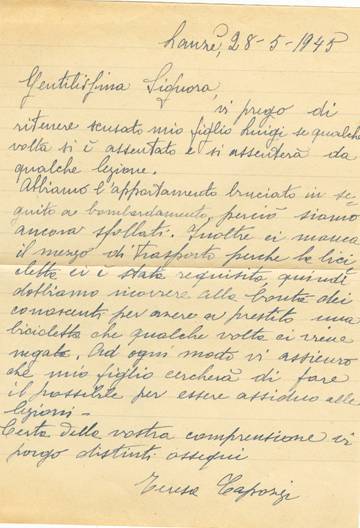 Lauzè, 28-5-1945
Gentilissima Signora,
vi prego di
ritenere scusato mio figlio Luigi se qualche
volta si è assentato e si assenterà da
qualche lezione.
Abbiamo l'appartamento bruciato in se-
guito a bombardamento, perciò siamo
ancora sfollati. Inoltre ci manca
il mezzo di trasporto perchè la bici-
cletta ci è stata requisita, quindi
dobbiamo ricorrere alla bontà dei
conoscenti per avere a prestito una
bicicletta che qualche volta ci viene
negata. Ad ogni modo vi assicuro
che mio figlio cercherà di fare
il possibile per essere assiduo alle
lezioni -
Certa della vostra comprensione vi
porgo distinti ossequi
Teresa